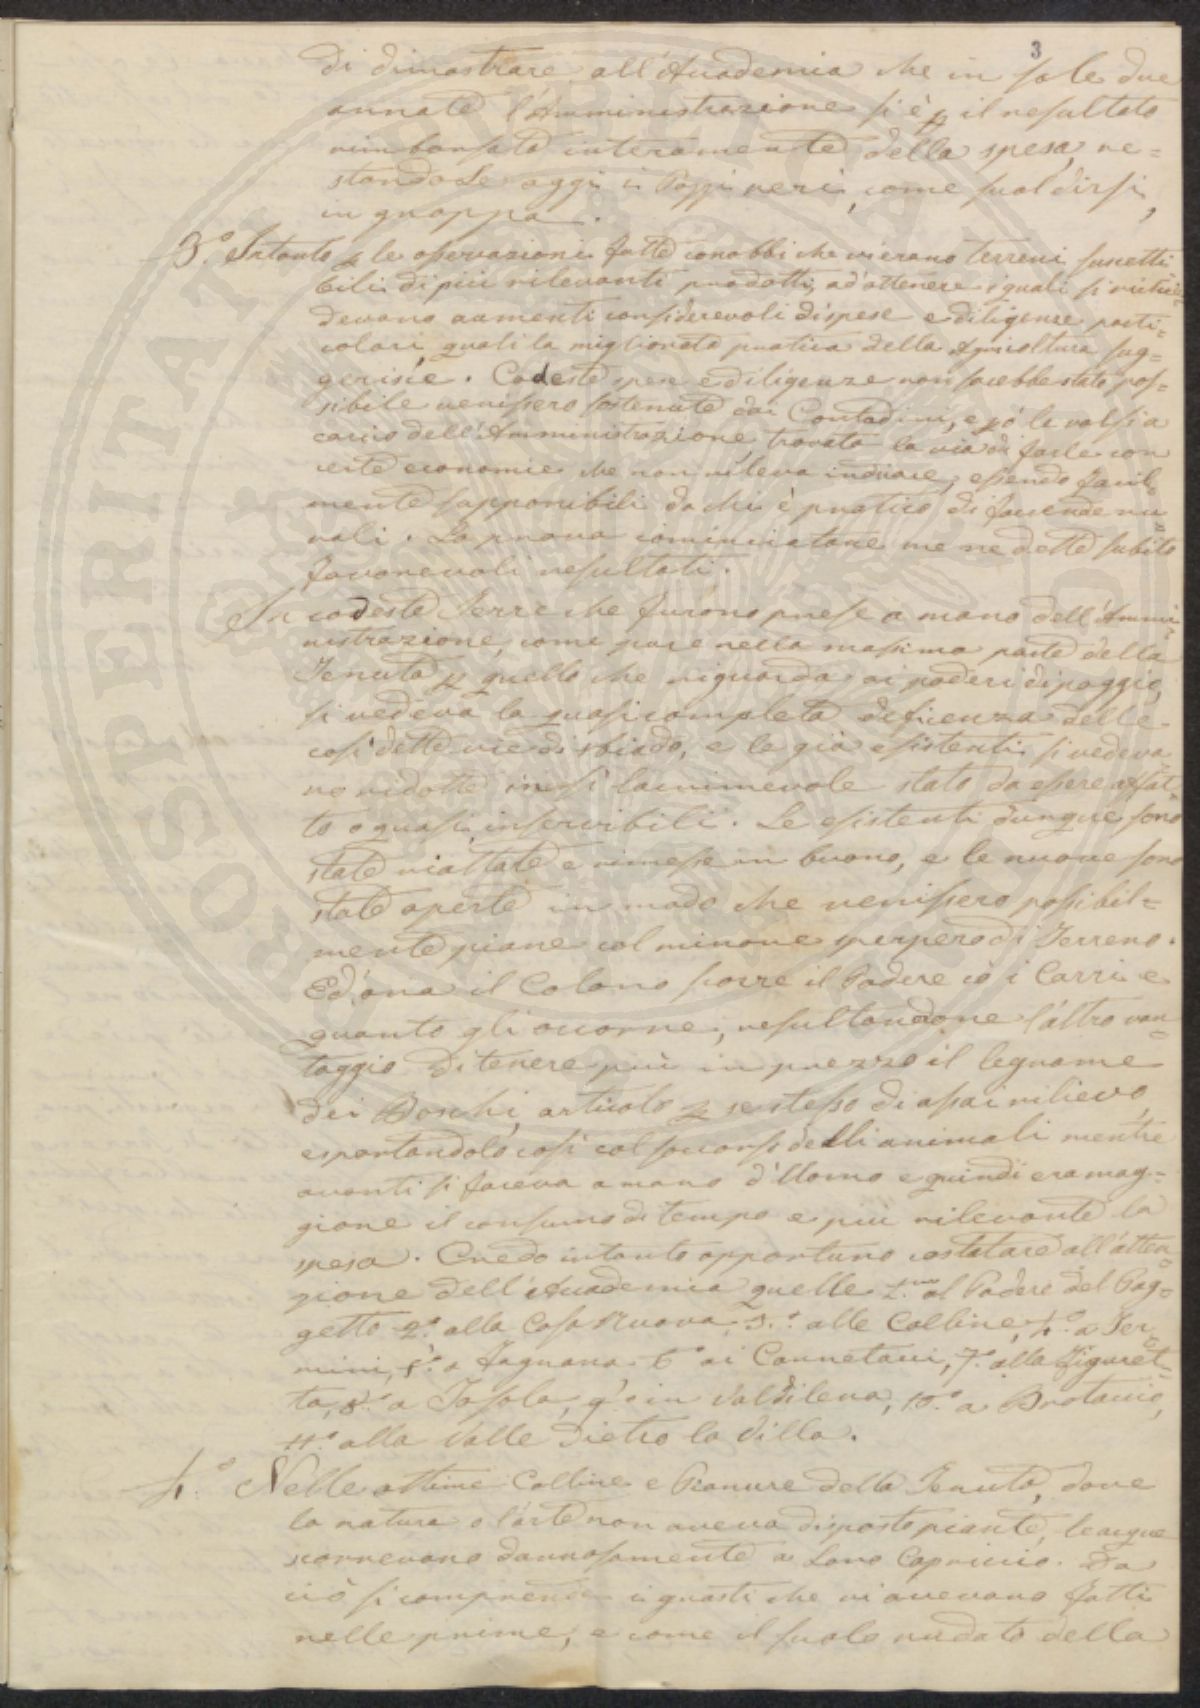 3
di dimostrare all'Accademia che in sole due
annate l'Amministrazione si è p il resultato
rimborsata interamente della spesa, re=
standole oggi i Poggi neri, come suol dirsi,
in groppa.
3.° Intanto p le osservazioni fatte conobbi che vi erano terreni suscetti
bili di più rilevanti prodotti, ad ottenere i quali si richie=
devano aumenti considerevoli di spese e diligenze parti=
colari, quali la migliorata pratica della Agricoltura sug=
gerisce. Codeste spese e diligenze non sarebbe stato pos=
sibile venissero sostenute dai Contadini, e pò le volsi a
carico dell'Amministrazione, trovata la via di farle con
certe economie che non rileva indicare, essendo facil=
mente supponibili da chi è pratico di faccende ru=
rali. La prova cominciatane me ne dette subito
favorevoli resultati.
In codeste Terre che furono prese a mano dell'Ammi=
nistrazione, come pure nella massima parte della
Tenuta p quello che riguarda ai poderi di poggio,
si vedeva la quasi completa deficenza delle
così dette vie di sbiado, e le già esistenti si vedeva=
no ridotte in sì lacrimevole stato da essere affat=
to o quasi inservibili. Le esistenti dunque sono
state riattate e rimesse in buono, e le nuove sono
state aperte in modo che venissero possibil=
mente piane col minore sperpero di Terreno.
Ed ora il Colono scorre il Podere co i Carri e
quanto gli occorre, resultandone l'altro van=
taggio di tenere più in prezzo il legname
dei Boschi, articolo p se stesso di assai rilievo,
esportandolo così col soccorso delli animali mentre
avanti si faceva a mano d'Uomo e quindi era mag=
giore il consumo di tempo e più rilevante la
spesa. Credo intanto opportuno costatare all'atten=
zione dell'Accademia quelle 1.mo al Podere del Pog=
getto 2.° alla Casa Nuova, 3.° alle Colline, 4.° a Ter=
mini, 5.° a Fagnana 6.° ai Cannetacci, 7.° alla Figuret=
ta, 8.° a Tosola, 9.° in Valdilena, 10.° a Brotacio,
11.° alla Valle dietro la Villa.
4.° Nelle ottime Colline e Pianure della Tenuta, dove
la natura o l'arte non aveva disposto piante, le acque
scorrevano dannosamente a Loro Capriccio. Da
ciò si comprende i guasti che vi avevano fatti
nelle prime, e come il suolo nudato della
PROSPERITATI PUBLICAE